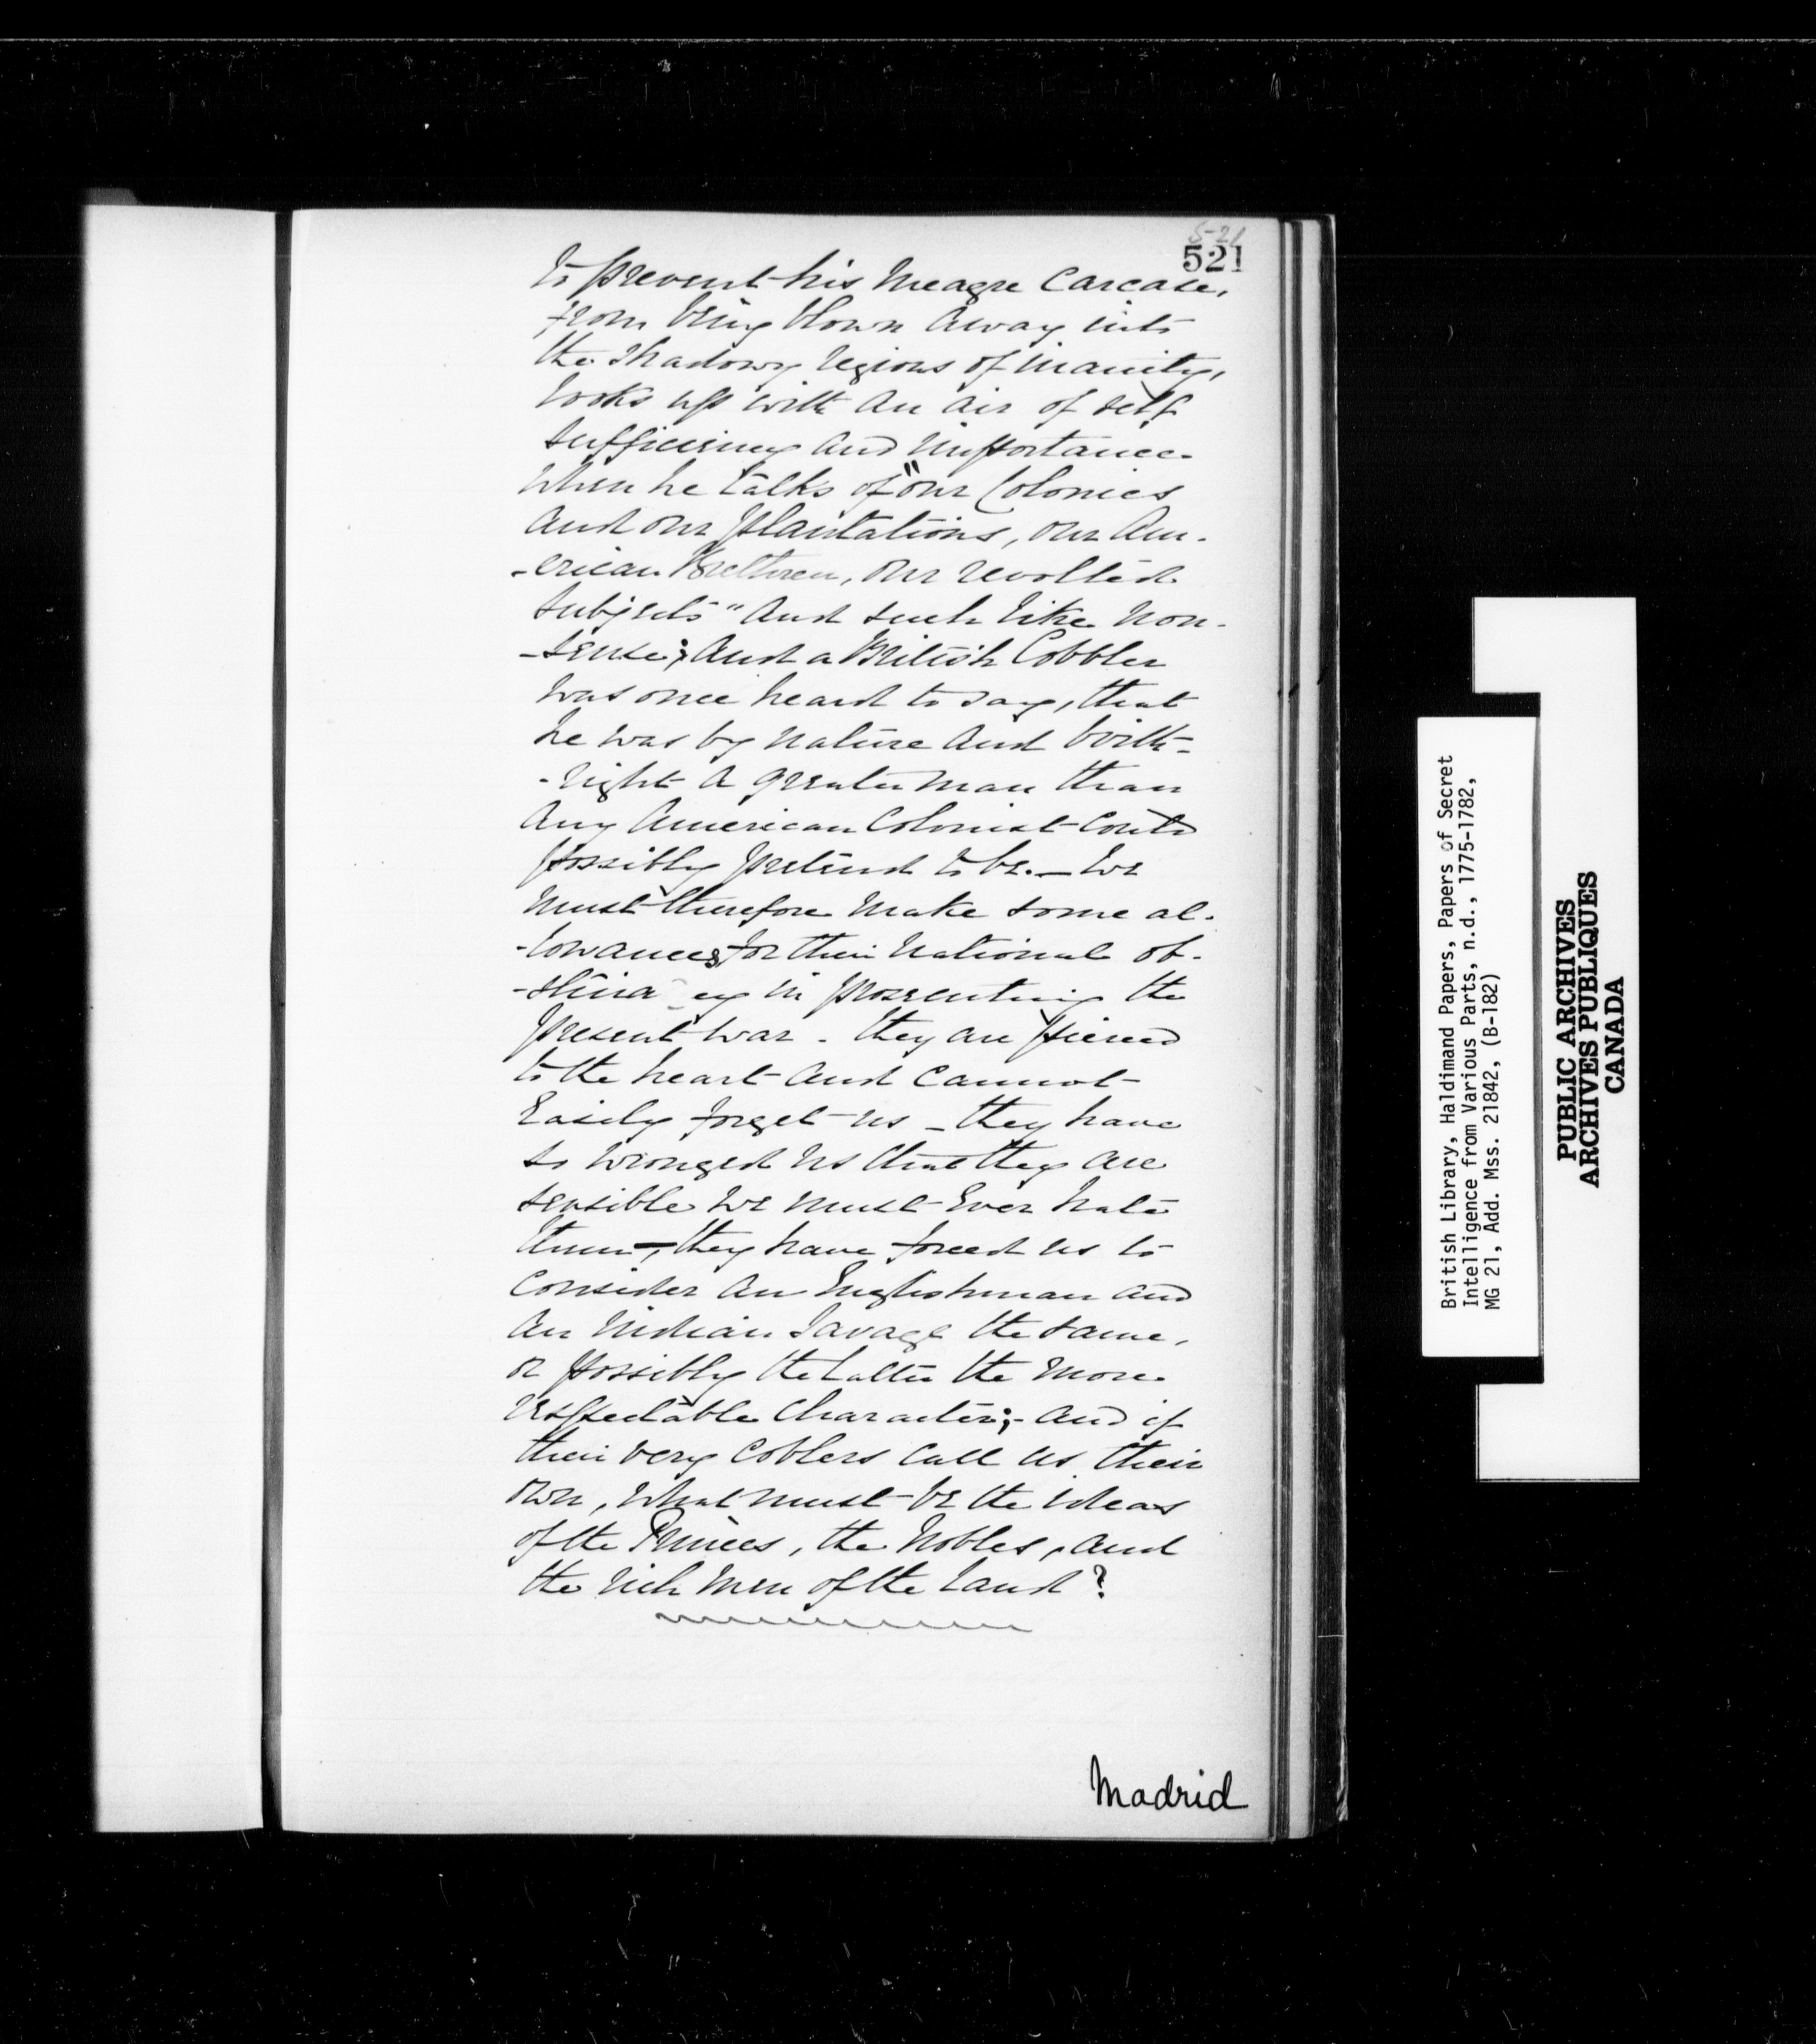 5-21
521
to prevent his meagre carcase,
from being blown away into
the shadowy regions of inanity,
looks up with an air of self
sufficiency and importance
when he talks of "our Colonies
and our plantations, our Am-
-erican Brethren, our revolted
subjects" and such like non-
-sense; and a British Cobbler
was once heard to say, that
he was by nature and birth-
-right a greater man than
any American Colonist could
possibly pretend to be. — We
must therefore make some al-
-lowances for their national ob-
-stinacy in prosecuting the
present war - they are pierced
to the heart and cannot
easily forget us - they have
so wronged us that they are
sensible we must ever hate
them - they have forced us to
consider an Englishman and
an Indian Savage the same,
or possibly the latter the more
respectable character; - and if
their very coblers call us their
own, what must be the ideas
of the Princes, the Nobles, and
the rich men of the Land?
Madrid
British Library, Haldimand Papers, Papers of Secret
Intelligence from Various Parts, n.d., 1775-1782,
MG 21, Add. Mss. 21842, (B-182)
PUBLIC ARCHIVES
ARCHIVES PUBLIQUES
CANADA